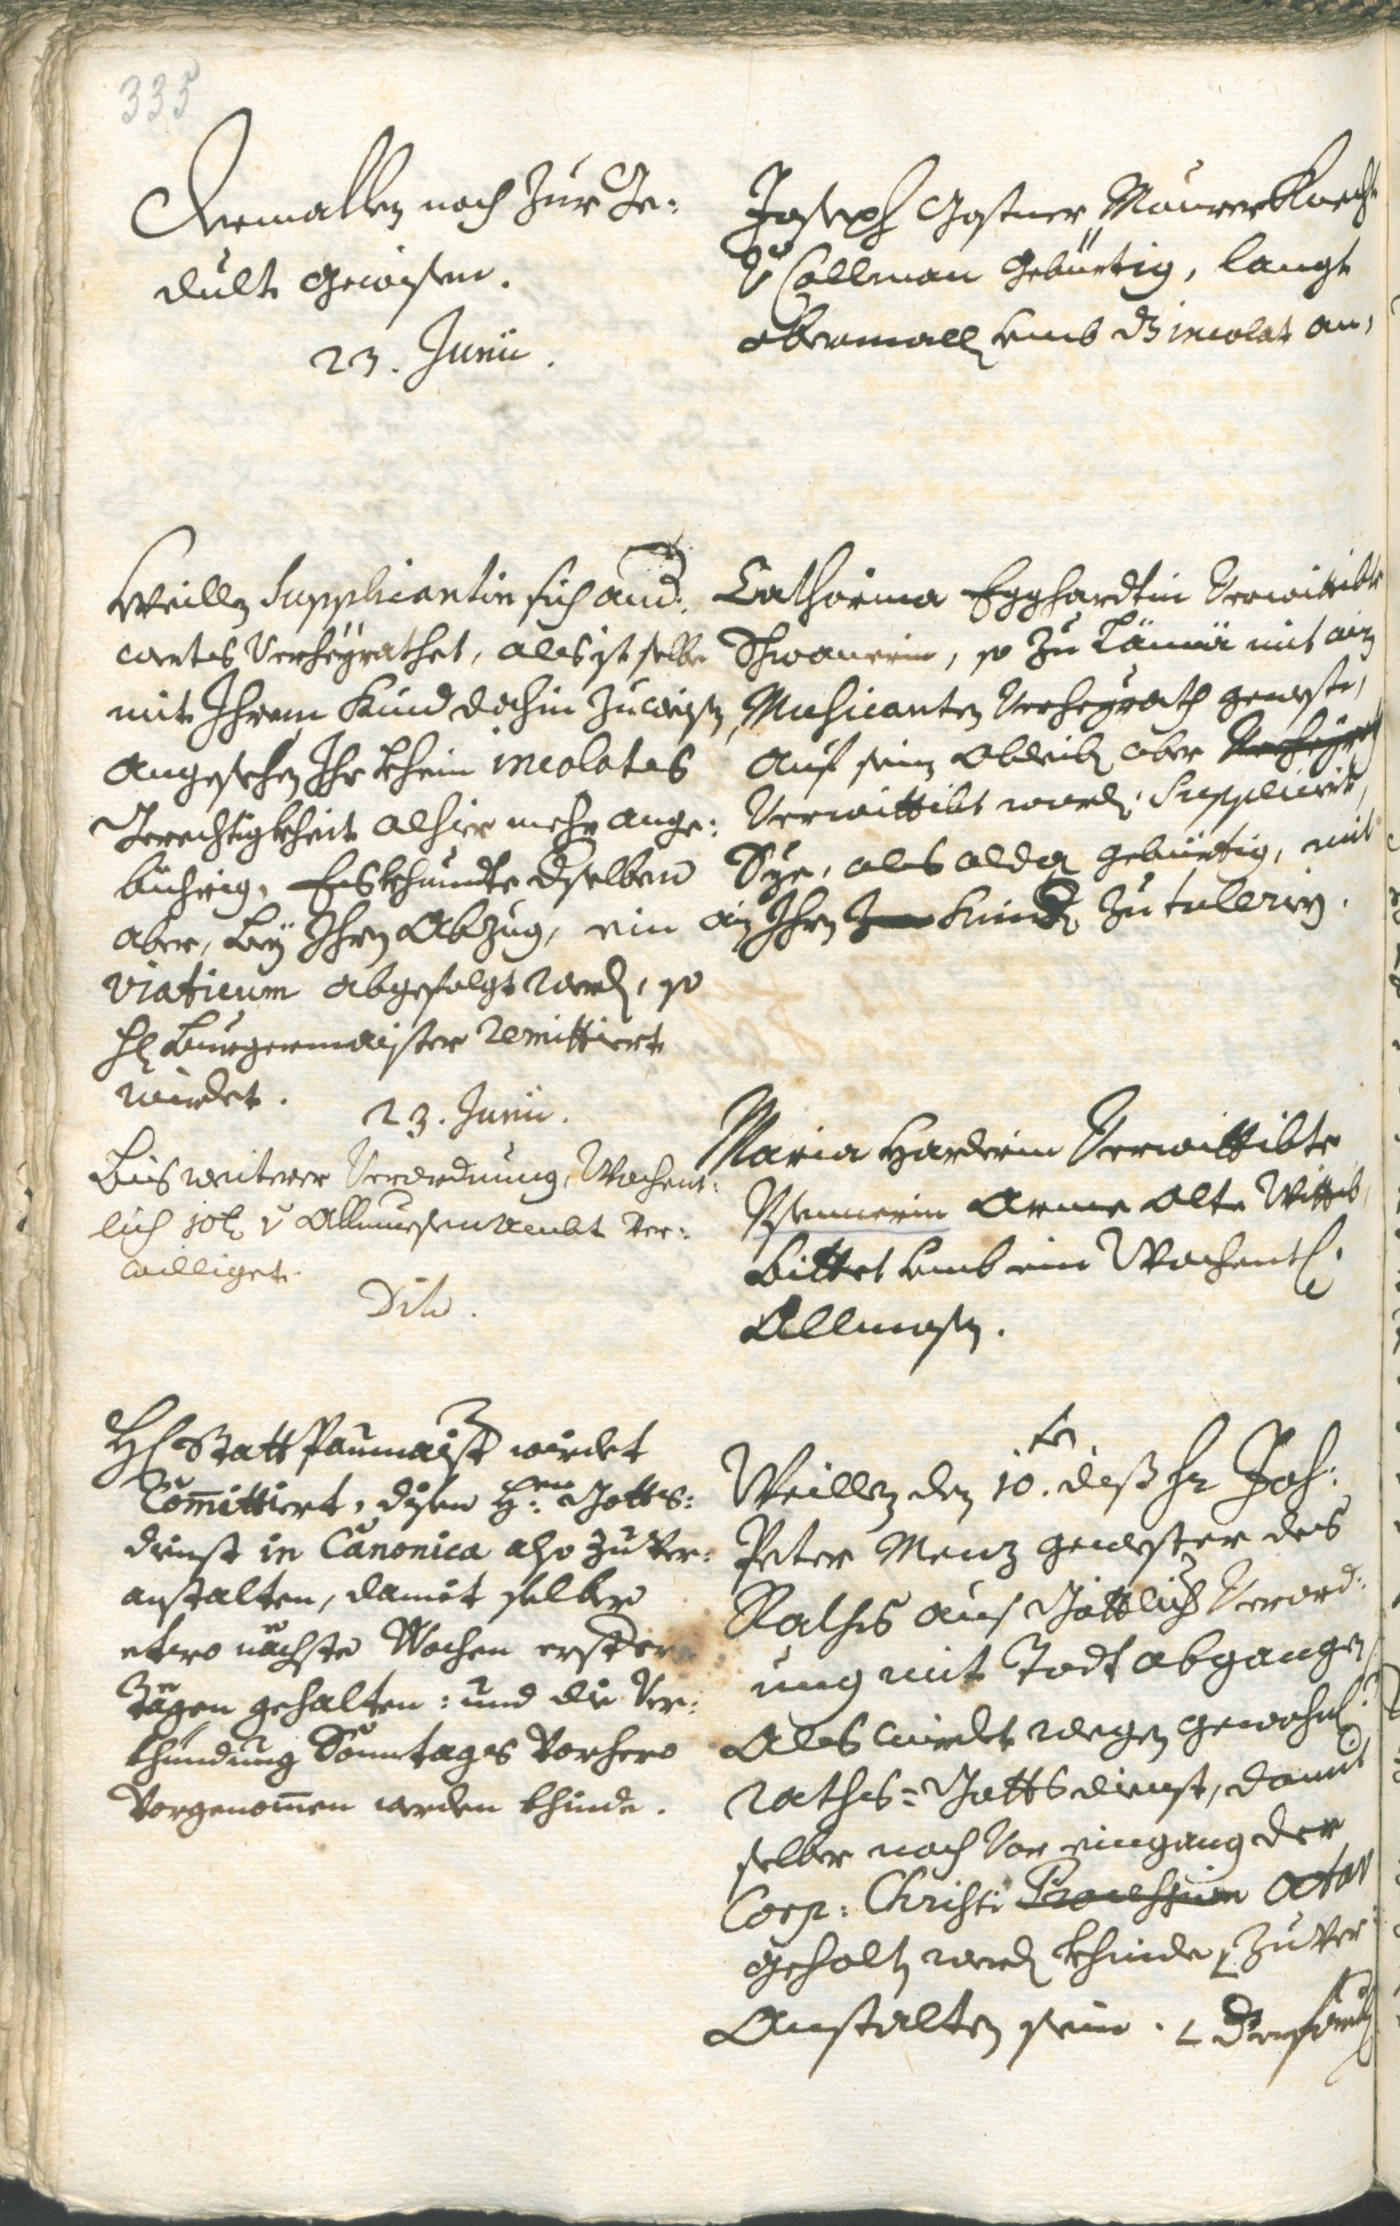 335
Abermallen noch zur Ge-
dult gewisen.
23. Junii.
Joseph Gostner Maurer Knecht
v Collman gebürtig, langt
abermall umb dz incolat an,
Weillen Supplicantin sich and:
wertes verheyrathet, als ist selbe
mit Ihrem Kind dahin zuweisen,
angesehen Ihr khein incolates
Gerechtigkheit alhier mehr ange-
bührig. Es khundte derselben
aber, bey Ihren Abzug, ein
viaticum abgefolgt werden, so
H Burgermaister remittiert
wirdet.
23. Junii.
Catharina Egghardtin verwittibte
Schwanerin, so zu mit ain
Musicanten verheyrath geweste,
auf sein Ableiben aber
verwittibt worden: Supplicirt,
Sye, als alda gebürtig, mit
Ihren Kind zu tolleriren.
Bis weiterer Verordnung, Wochent-
lich 10 v Allmuesenambt ver-
williget.
Dito.
Maria Harderin Verwittibte
arme alte Wittib,
bittet umb ein Wochentl:
Allmosen.
H Statt Paumaister wirdet
Committiert, disen H: Gotts-
dienst in Canonica also zu ver-
anstalten, damit selber
etwo nächste Wochen erstere
Tägen gehalten: und die Ver-
khündung Sonntages vorhero
vorgenommen werden khinde.
Weillen den 10.ten diss Hr Joh:
Peter Menz gewester des
Rathes aus Göttlicher Verord-
ung mit Todt abgangen,
Als wirdet wegen gewohnl:
raths-Gottsdienst, damit
selber noch vor eingang der
Corp: Christi Procession Octav
gehalten werden khinde, zu ver-
Anstalten sein.